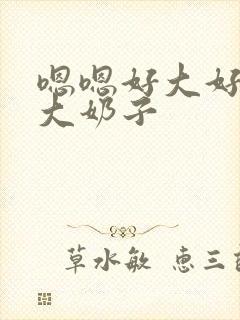 嗯嗯好大好
大奶子
草水敏 惠三